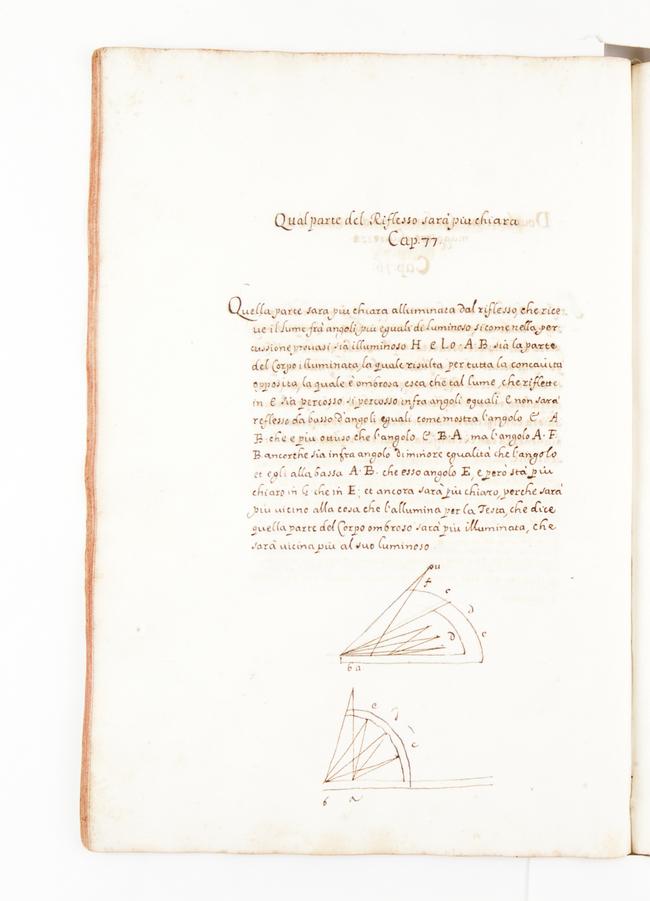 Qual parte del Riflesso sarà più chiara
Cap. 77.
Quella parte sara più chiara alluminata dal riflesso, che rice
ue il lume fra angoli più eguali di luminoso si come nella per
cussione prouasi sia illuminoso H e Lo A B sia la parte
del Corpo illuminata, la quale risulta per tutta la concauità
opposita, la quale è ombrosa, esca che tal lume, che riflette
in E sia percosso si percosso infra angoli eguali E non sarà
reflesso da basso d'angoli eguali come mostra l'angolo E. A
B. che e piu ottuso che l'angolo E. B. A; ma l'angolo A. F.
B ancorche sia infra angolo di minore equalità che l'angolo
et egli alla bassa A. B. che esso angolo E, e però sta più
chiaro in G che in E; et ancora sarà più chiaro, perche sarà
più uicino alla cosa che l'allumina per la Testa, che dice
quella parte del Corpo ombroso sarà più illuminata, che
sarà uicina più al suo luminoso
f
c
d
D
c
b a
e
d
c
b
a